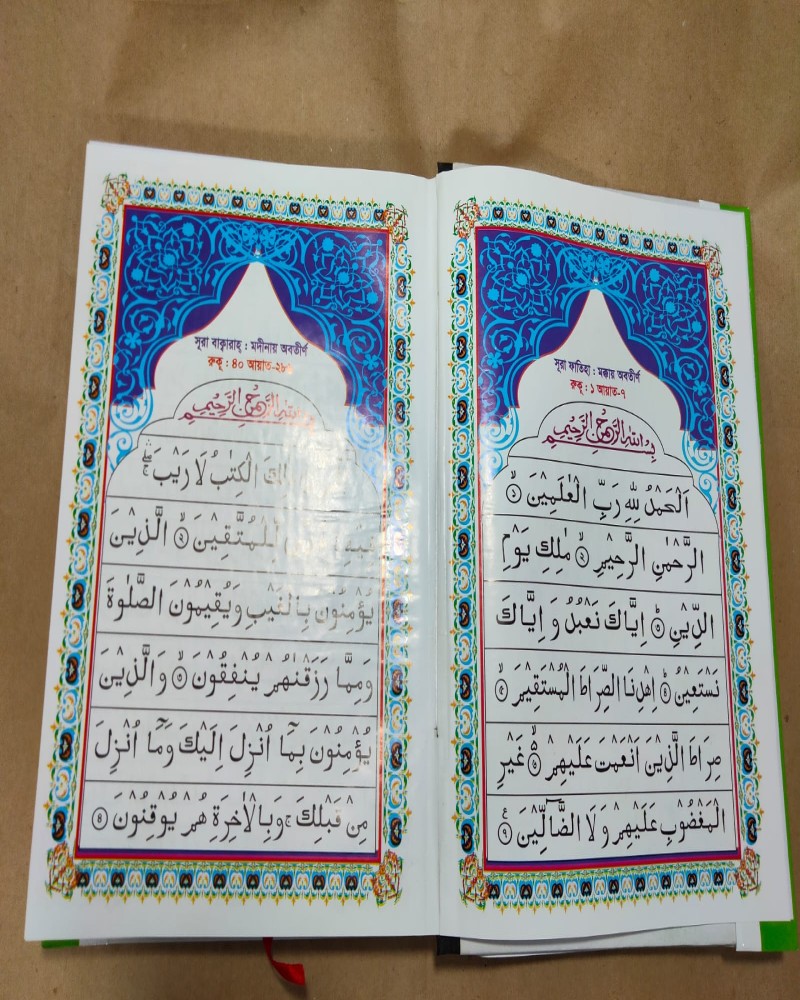 সূরা ফাতিহা : মক্কায় অবতীর্ণ
রুকু : ১ আয়াত-৭
بِسْمِ اللهِ الرَّحْمٰنِ الرَّحِيْمِ
اَلْحَمْدُ لِلّٰهِ رَبِّ الْعٰلَمِيْنَ ۙ﴿۱﴾
الرَّحْمٰنِ الرَّحِيْمِ ۙ﴿۲﴾ مٰلِكِ يَوْمِ
الدِّيْنِ ؕ﴿۳﴾ اِيَّاكَ نَعْبُدُ وَ اِيَّاكَ
نَسْتَعِيْنُ ؕ﴿۴﴾ اِهْدِنَا الصِّرَاطَ الْمُسْتَقِيْمَ ۙ﴿۵﴾
صِرَاطَ الَّذِيْنَ اَنْعَمْتَ عَلَيْهِمْ ۙ۬ غَيْرِ
الْمَغْضُوْبِ عَلَيْهِمْ وَ لَا الضَّآلِّيْنَ
সূরা বাক্বারাহ্ : মদীনায় অবতীর্ণ
রুকু : ৪০ আয়াত-২৮৬
بِسْمِ اللهِ الرَّحْمٰنِ الرَّحِيْمِ
الْكِتٰبُ لَا رَيْبَ ۛ
لِّلْمُتَّقِيْنَ ۙ﴿۲﴾ الَّذِيْنَ
يُؤْمِنُوْنَ بِالْغَيْبِ وَيُقِيْمُوْنَ الصَّلٰوةَ
وَمِمَّا رَزَقْنٰهُمْ يُنْفِقُوْنَ ۙ﴿۳﴾ وَالَّذِيْنَ
يُؤْمِنُوْنَ بِمَآ اُنْزِلَ اِلَيْكَ وَمَآ اُنْزِلَ
مِنْ قَبْلِكَ ۚ وَبِالْاٰخِرَةِ هُمْ يُوْقِنُوْنَ ﴿۴﴾